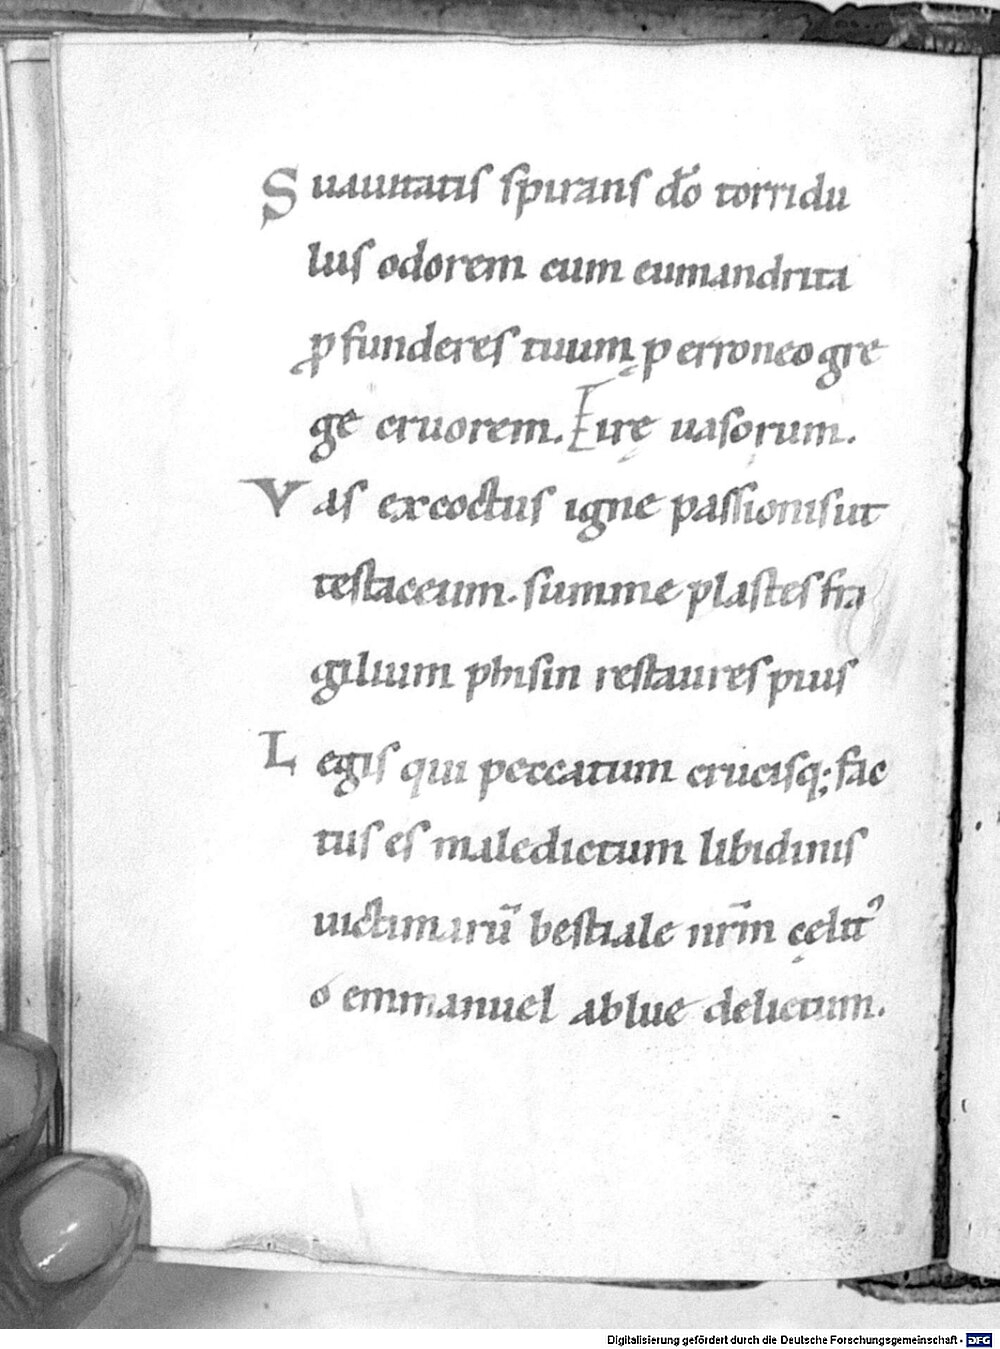 Suauitatis spirans do̅ torridu
lus odorem cum eumandrita
ꝓfunderes tuum ꝑ erroneo gre
ge cruorem. Lirę uasorum.
Vas excoctus igne passionis ut
testaceum. summe plastes fra
gilium phisin restaures pius
Legis qui peccatum crucisq; fac
tus es maledictum libidinis
uictimaru̅ bestiale nr̅m cęlit᾽
o emmanuel ablue delictum.
Digitalisierung gefördert durch die Deutsche Forschungsgemeinschaft - DFG